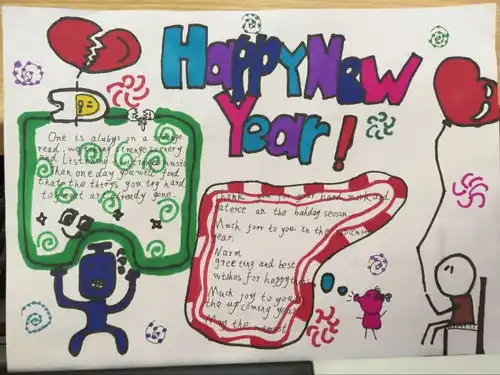 Happy New
Year!
One is alwbys on a strange
read, watching strange scenery
and listening to strange music
Then one day, you will find
that the things you try hard
to forget are already gone.
Thank you for your hard work and
patence an the hahday season.
Much jorr to you in the
year.
Warm
greeting and best
wishes for happy
Much joy to you
the up coming year
May the